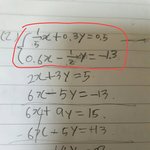 (2) { 1/5 x + 0.3y = 0.5
0.6x - 1/2 y = -1.3
2x + 3y = 5
6x - 5y = -13.
6x + 9y = 15.
-6x + 5y = +13